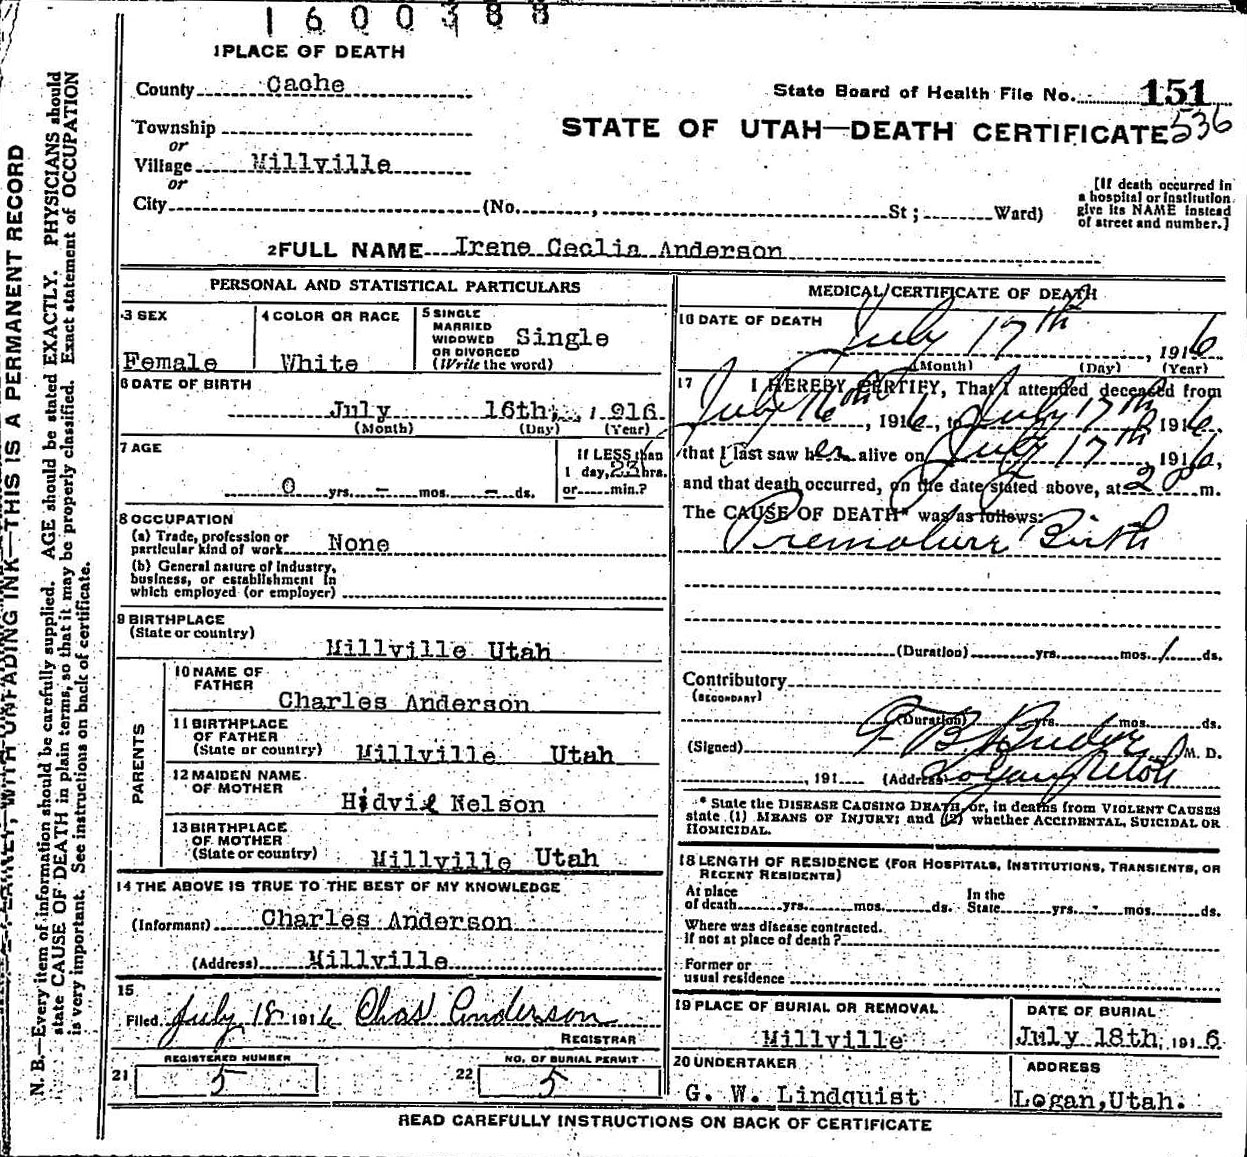 1600388
1 PLACE OF DEATH
County Cache
State Board of Health File No. 151
Township
STATE OF UTAH—DEATH CERTIFICATE 536
or
Village Millville
or
City (No. , St; Ward)
[If death occurred in
a hospital or institution
give its NAME instead
of street and number.]
2 FULL NAME Irene Ceclia Anderson
PERSONAL AND STATISTICAL PARTICULARS
3 SEX
Female
4 COLOR OR RACE
White
5 SINGLE
MARRIED
WIDOWED
OR DIVORCED
(Write the word)
Single
6 DATE OF BIRTH
July 16th, 1916
(Month) (Day) (Year)
7 AGE
0 yrs. – mos. – ds.
If LESS than
1 day, 23 hrs.
or min.?
8 OCCUPATION
(a) Trade, profession or
particular kind of work None
(b) General nature of industry,
business, or establishment in
which employed (or employer)
9 BIRTHPLACE
(State or country)
Millville Utah
PARENTS
10 NAME OF
FATHER
Charles Anderson
11 BIRTHPLACE
OF FATHER
(State or country) Millville Utah
12 MAIDEN NAME
OF MOTHER
Hidvil Nelson
13 BIRTHPLACE
OF MOTHER
(State or country) Millville Utah
14 THE ABOVE IS TRUE TO THE BEST OF MY KNOWLEDGE
(Informant) Charles Anderson
(Address) Millville
15
Filed July 18 1916 Chas Anderson
REGISTRAR
REGISTERED NUMBER
21 5
NO. OF BURIAL PERMIT
22 5
MEDICAL CERTIFICATE OF DEATH
16 DATE OF DEATH
July 17th, 1916
(Month) (Day) (Year)
17 I HEREBY CERTIFY, That I attended deceased from
July 16th, 1916, to July 17th 1916,
that I last saw her alive on July 17th, 1916,
and that death occurred, on the date stated above, at 2 P m.
The CAUSE OF DEATH* was as follows:
Premature Birth
(Duration) yrs. mos. 1 ds.
Contributory
(SECONDARY)
(Duration) yrs. mos. ds.
(Signed) M. D.
, 191 (Address) Logan Utah
* State the DISEASE CAUSING DEATH, or, in deaths from VIOLENT CAUSES
state (1) MEANS OF INJURY; and (2) whether ACCIDENTAL, SUICIDAL OR
HOMICIDAL.
18 LENGTH OF RESIDENCE (FOR HOSPITALS, INSTITUTIONS, TRANSIENTS, OR
RECENT RESIDENTS)
At place
of death yrs. mos. ds.
In the
State yrs. mos. ds.
Where was disease contracted.
If not at place of death?
Former or
usual residence
19 PLACE OF BURIAL OR REMOVAL
Millville
DATE OF BURIAL
July 18th, 1916
20 UNDERTAKER
G. W. Lindquist
ADDRESS
Logan, Utah.
READ CAREFULLY INSTRUCTIONS ON BACK OF CERTIFICATE
WITH UNFADING INK—THIS IS A PERMANENT RECORD
N. B.—Every item of information should be carefully supplied. AGE should be stated EXACTLY. PHYSICIANS should
state CAUSE OF DEATH in plain terms, so that it may be properly classified. Exact statement of OCCUPATION
is very important. See instructions on back of certificate.